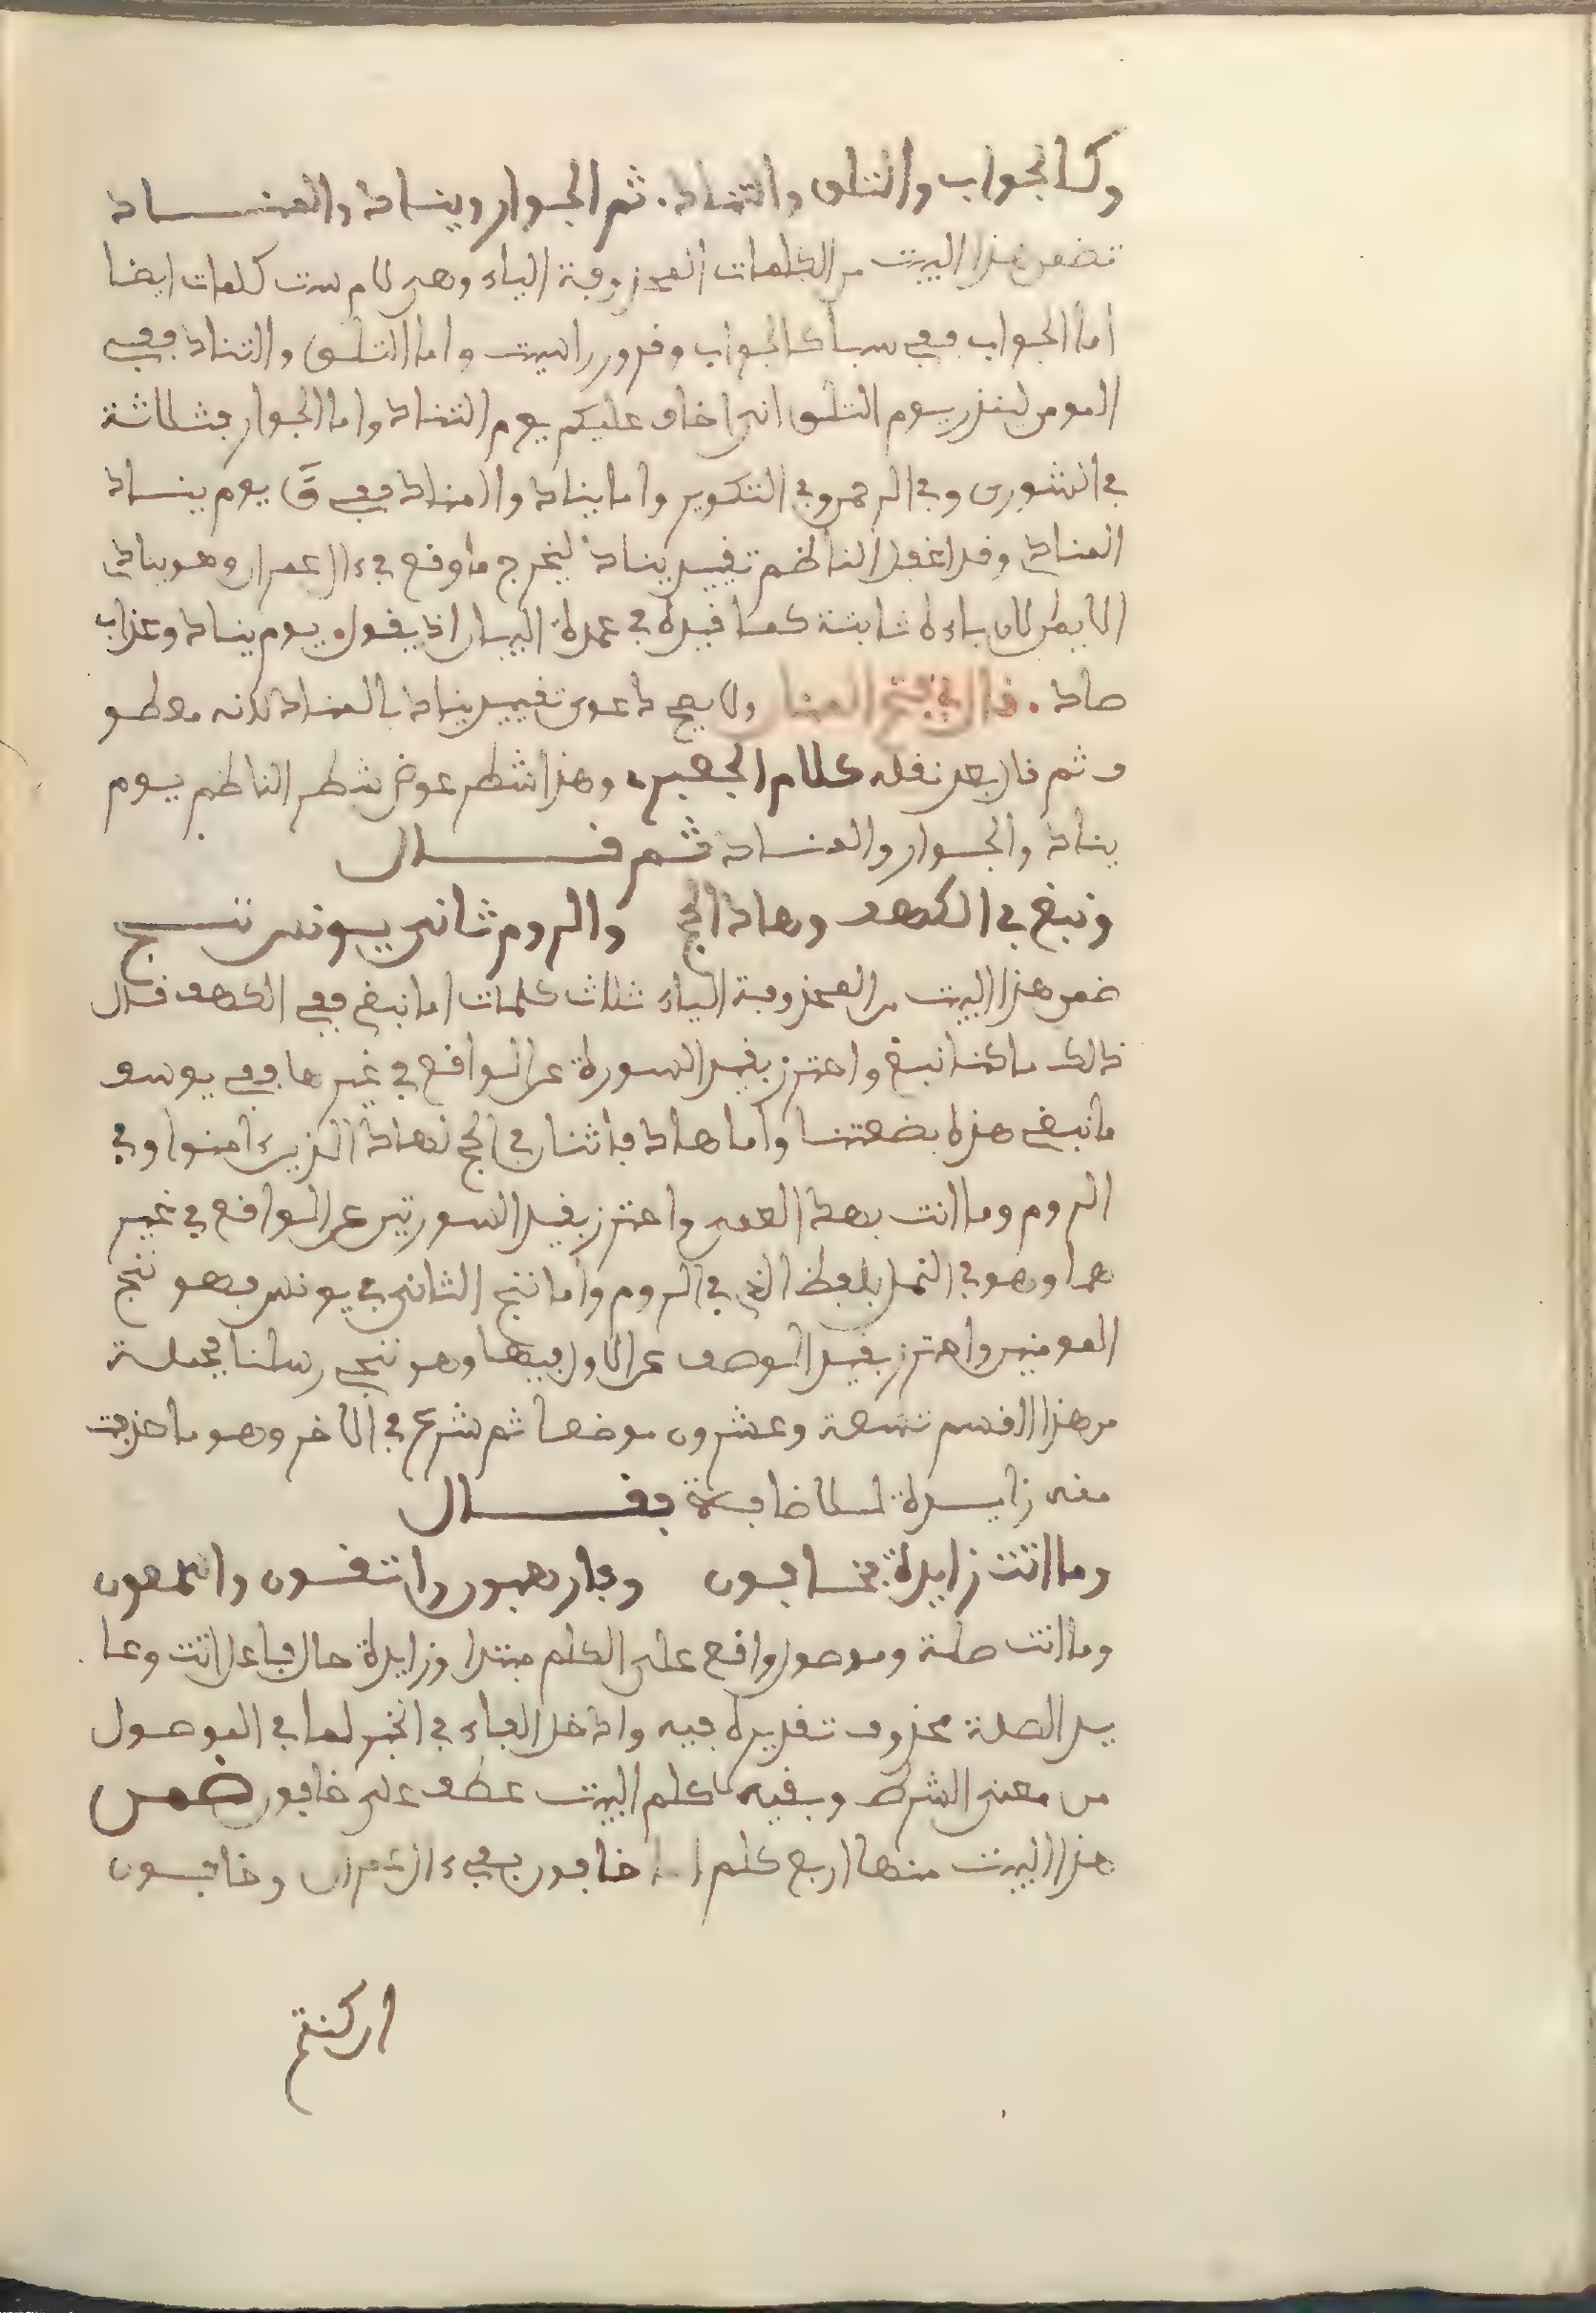 وكالجواب والتلاق والتناد. ثم الجوار ويناد والمناد
تضمن هذا البيت من الكلمات المحذوفة الياء وهي لام ست كلمات ايضا
اما الجواب ففي سبأ كالجواب وقدور راسيت واما التلاق والتناد ففي
المومن لينذر يوم التلاق اني اخاف عليكم يوم التناد واما الجوار فثلاثة
في الشورى وفي الرحمن وفي التكوير واما يناد والمناد ففي ق يوم يناد
المناد وقد اغفل الناظم تقييد يناد ليخرج ما وقع في ءال عمران وهو ينادي
للايمن لان ياءه ثابتة كما قيده في عمدة البيان اذ يقول يوم يناد وعذاب
صاد. قال في فتح المنان ولا يصح دعوى تقييد يناد بالمناد لانه معطو
ف ثم قال بعد نقله كلام الجعبري وهذا شطر عوض شطر الناظم يوم
يناد والجوار والمناد ثم قال
ونبغ في الكهف وهاد الحج والروم ثاني يونس ننج
ضمن هذا البيت من المحذوفة الياء ثلاث كلمات اما نبغ ففي الكهف قال
ذالك ما كنا نبغ واحترز بقيد السورة عن الواقع في غيرها ففي يوسف
ما نبغي هذه بضعتنا واما هاد فاثنان في الحج لهاد الذين ءامنوا وفي
الروم وما انت بهاد العمي واحترز بقيد السورتين عن الواقع في غير
هما وهو في النمل بلفظ الذي في الروم واما ننج الثاني في يونس فهو ننج
المومنين واحترز بقيد الوصف عن الاول فيها وهو ننجي رسلنا فجملة
من هذا القسم تسعة وعشرون موضعا ثم شرع في الاخر وهو ما حذفت
منه زايدة للاضافة فقال
وما اتت زايدة فخافون وفارهبون واتقون واسمعون
وما اتت صلة وموصول واقع على الكلم مبتدا وزايدة حال فاعل اتت وعا
يد الصلة محذوف تقديره فيه وادخل الفاء في الخبر لما في الموصول
من معنى الشرط وبقية كلم البيت عطف على خافون ضمن
هذا البيت منها اربع كلم اما خافون ففي ءال عمران وخافون
ان كنتم